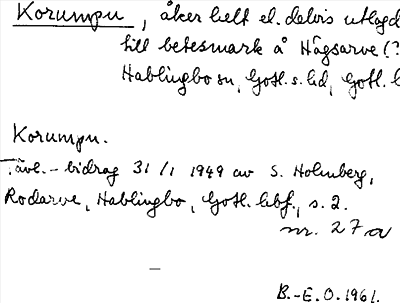 Korumpu, åker helt el. delvis utlagd
till betesmark å Hågsarve (?
Hablingbo sn, Gotl. s. hd, Gotl. l
Korumpu.
Tävl.-bidrag 31/1 1949 av S. Holmberg,
Rodarve, Hablingbo, Gotl. hbf., s. 2.
nr. 27 a
B.-E.O. 1961.